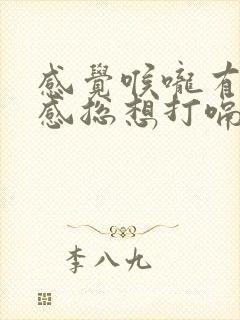 感覺喉嚨有
感總想打嗝
李八九